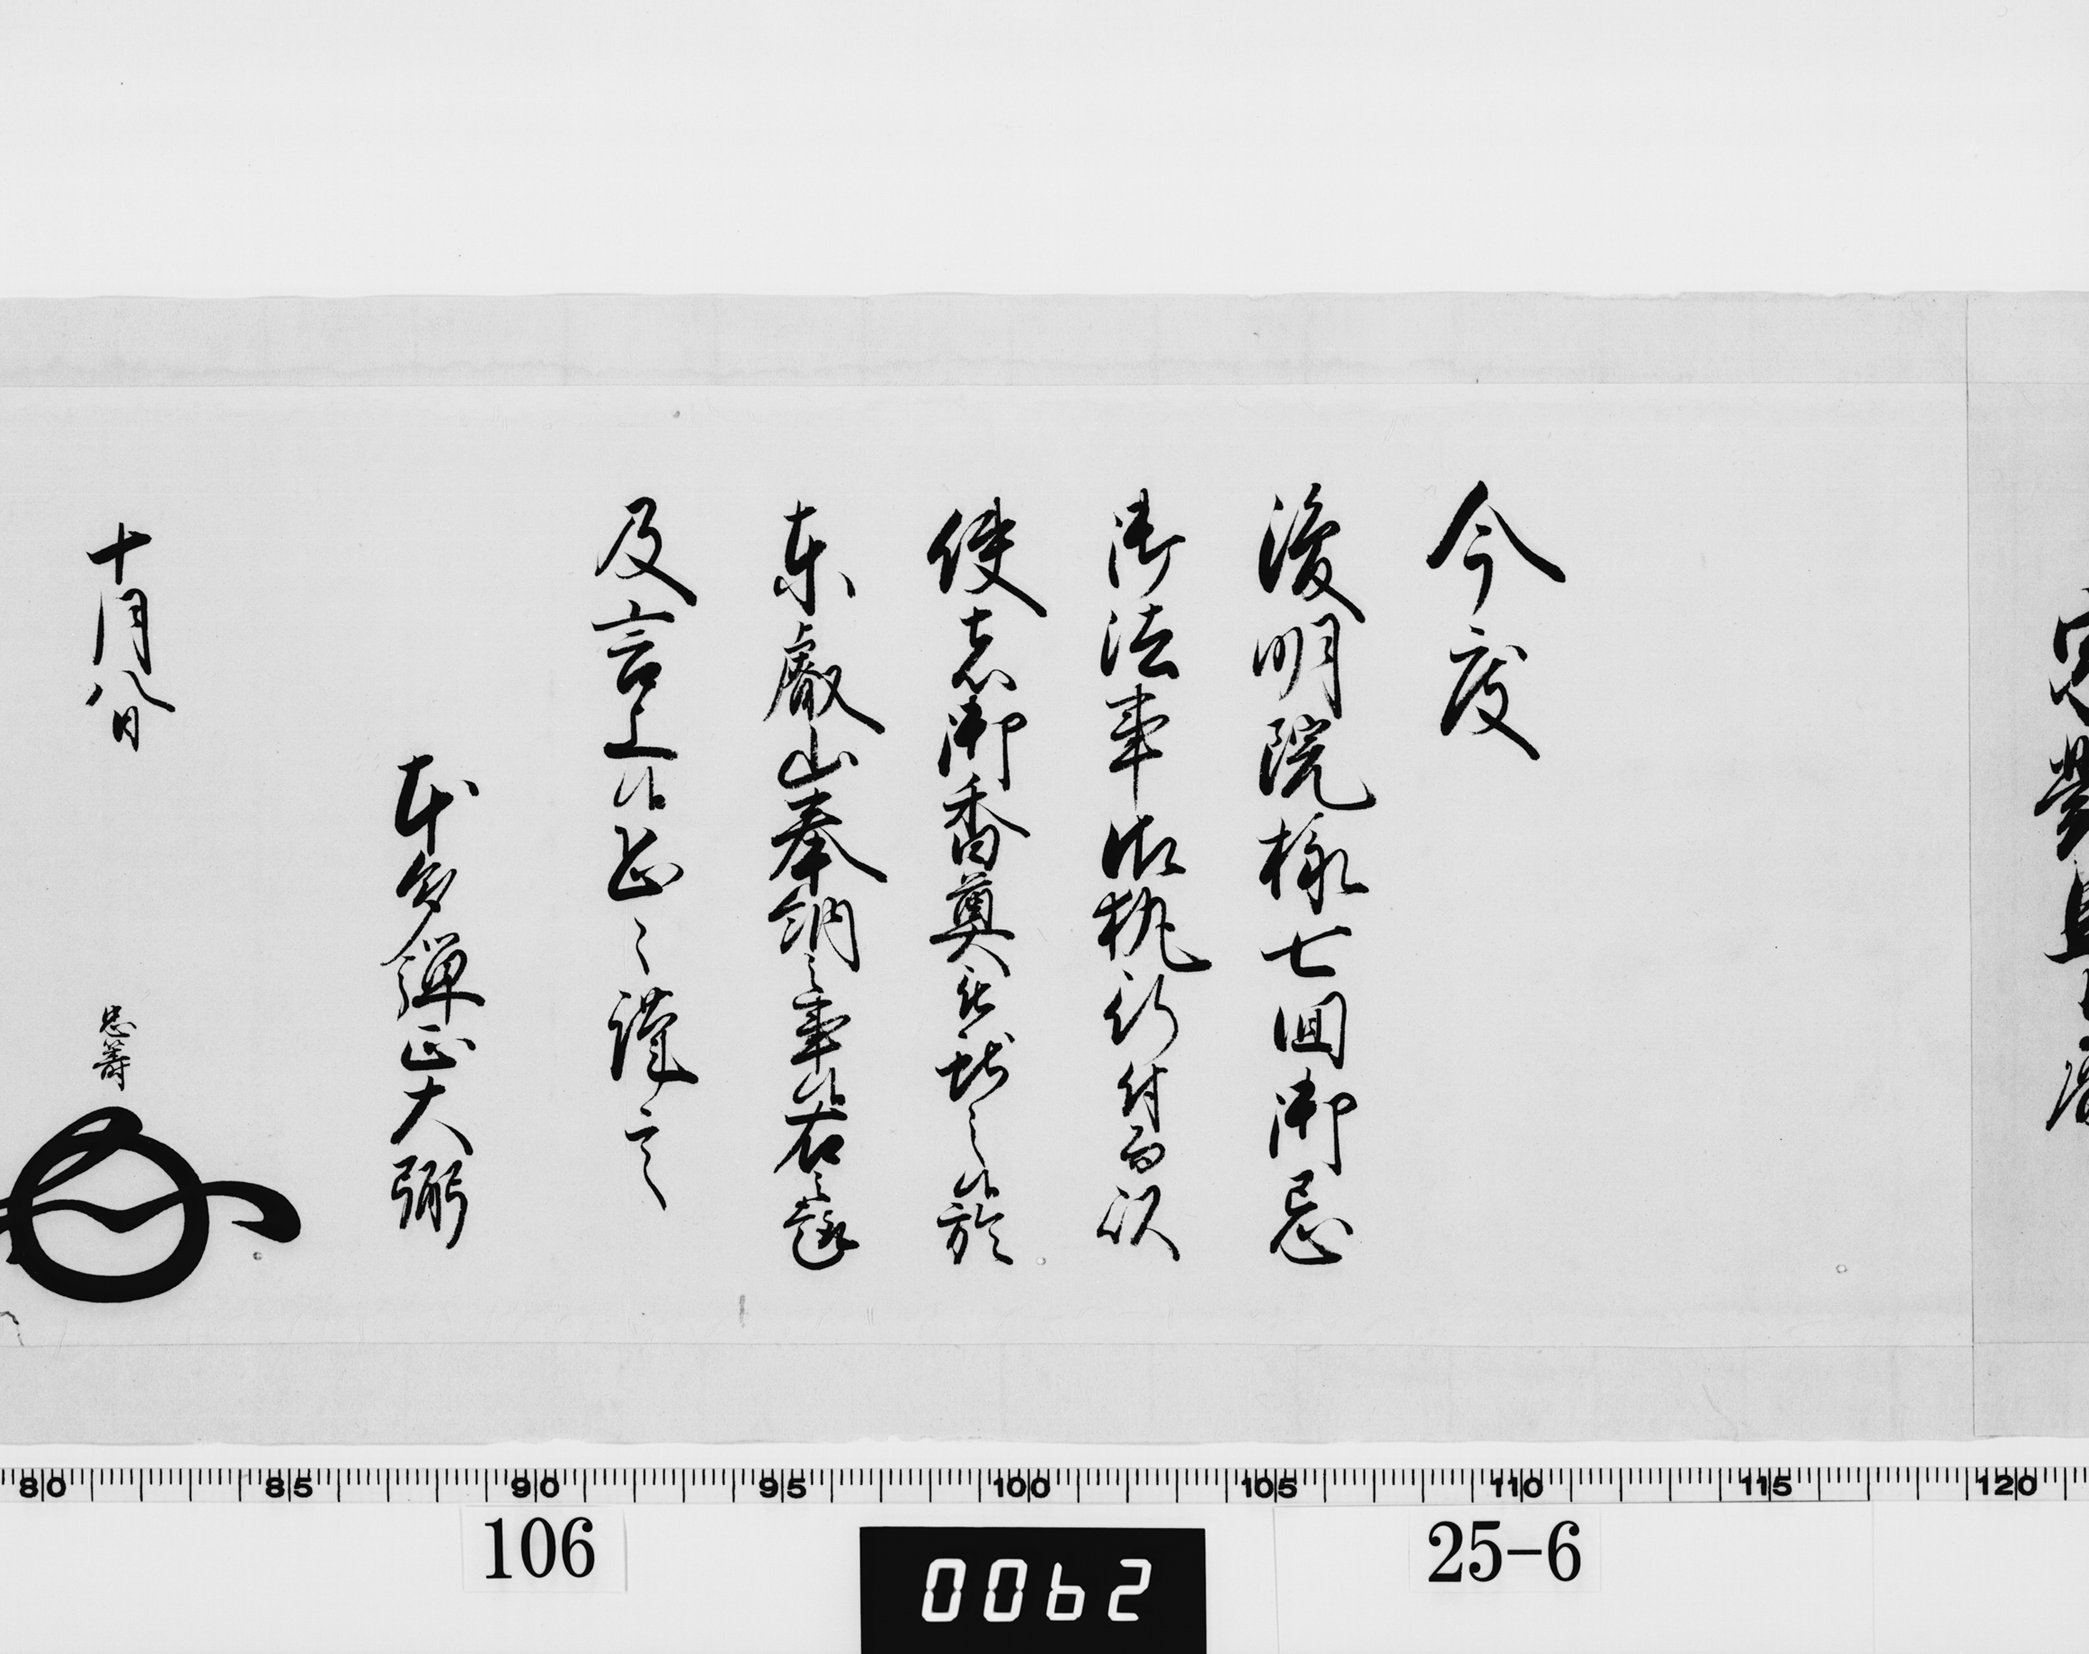 今度
浚明院様七回御忌
御法事御執行付而以
使者御香奠被献之候於
東叡山奉納之事候右之趣
及言上候恐々謹言
本多弾正大弼
十月八日
忠籌
80 85 90 95 100 105 110 115 120
106
0062
25-6